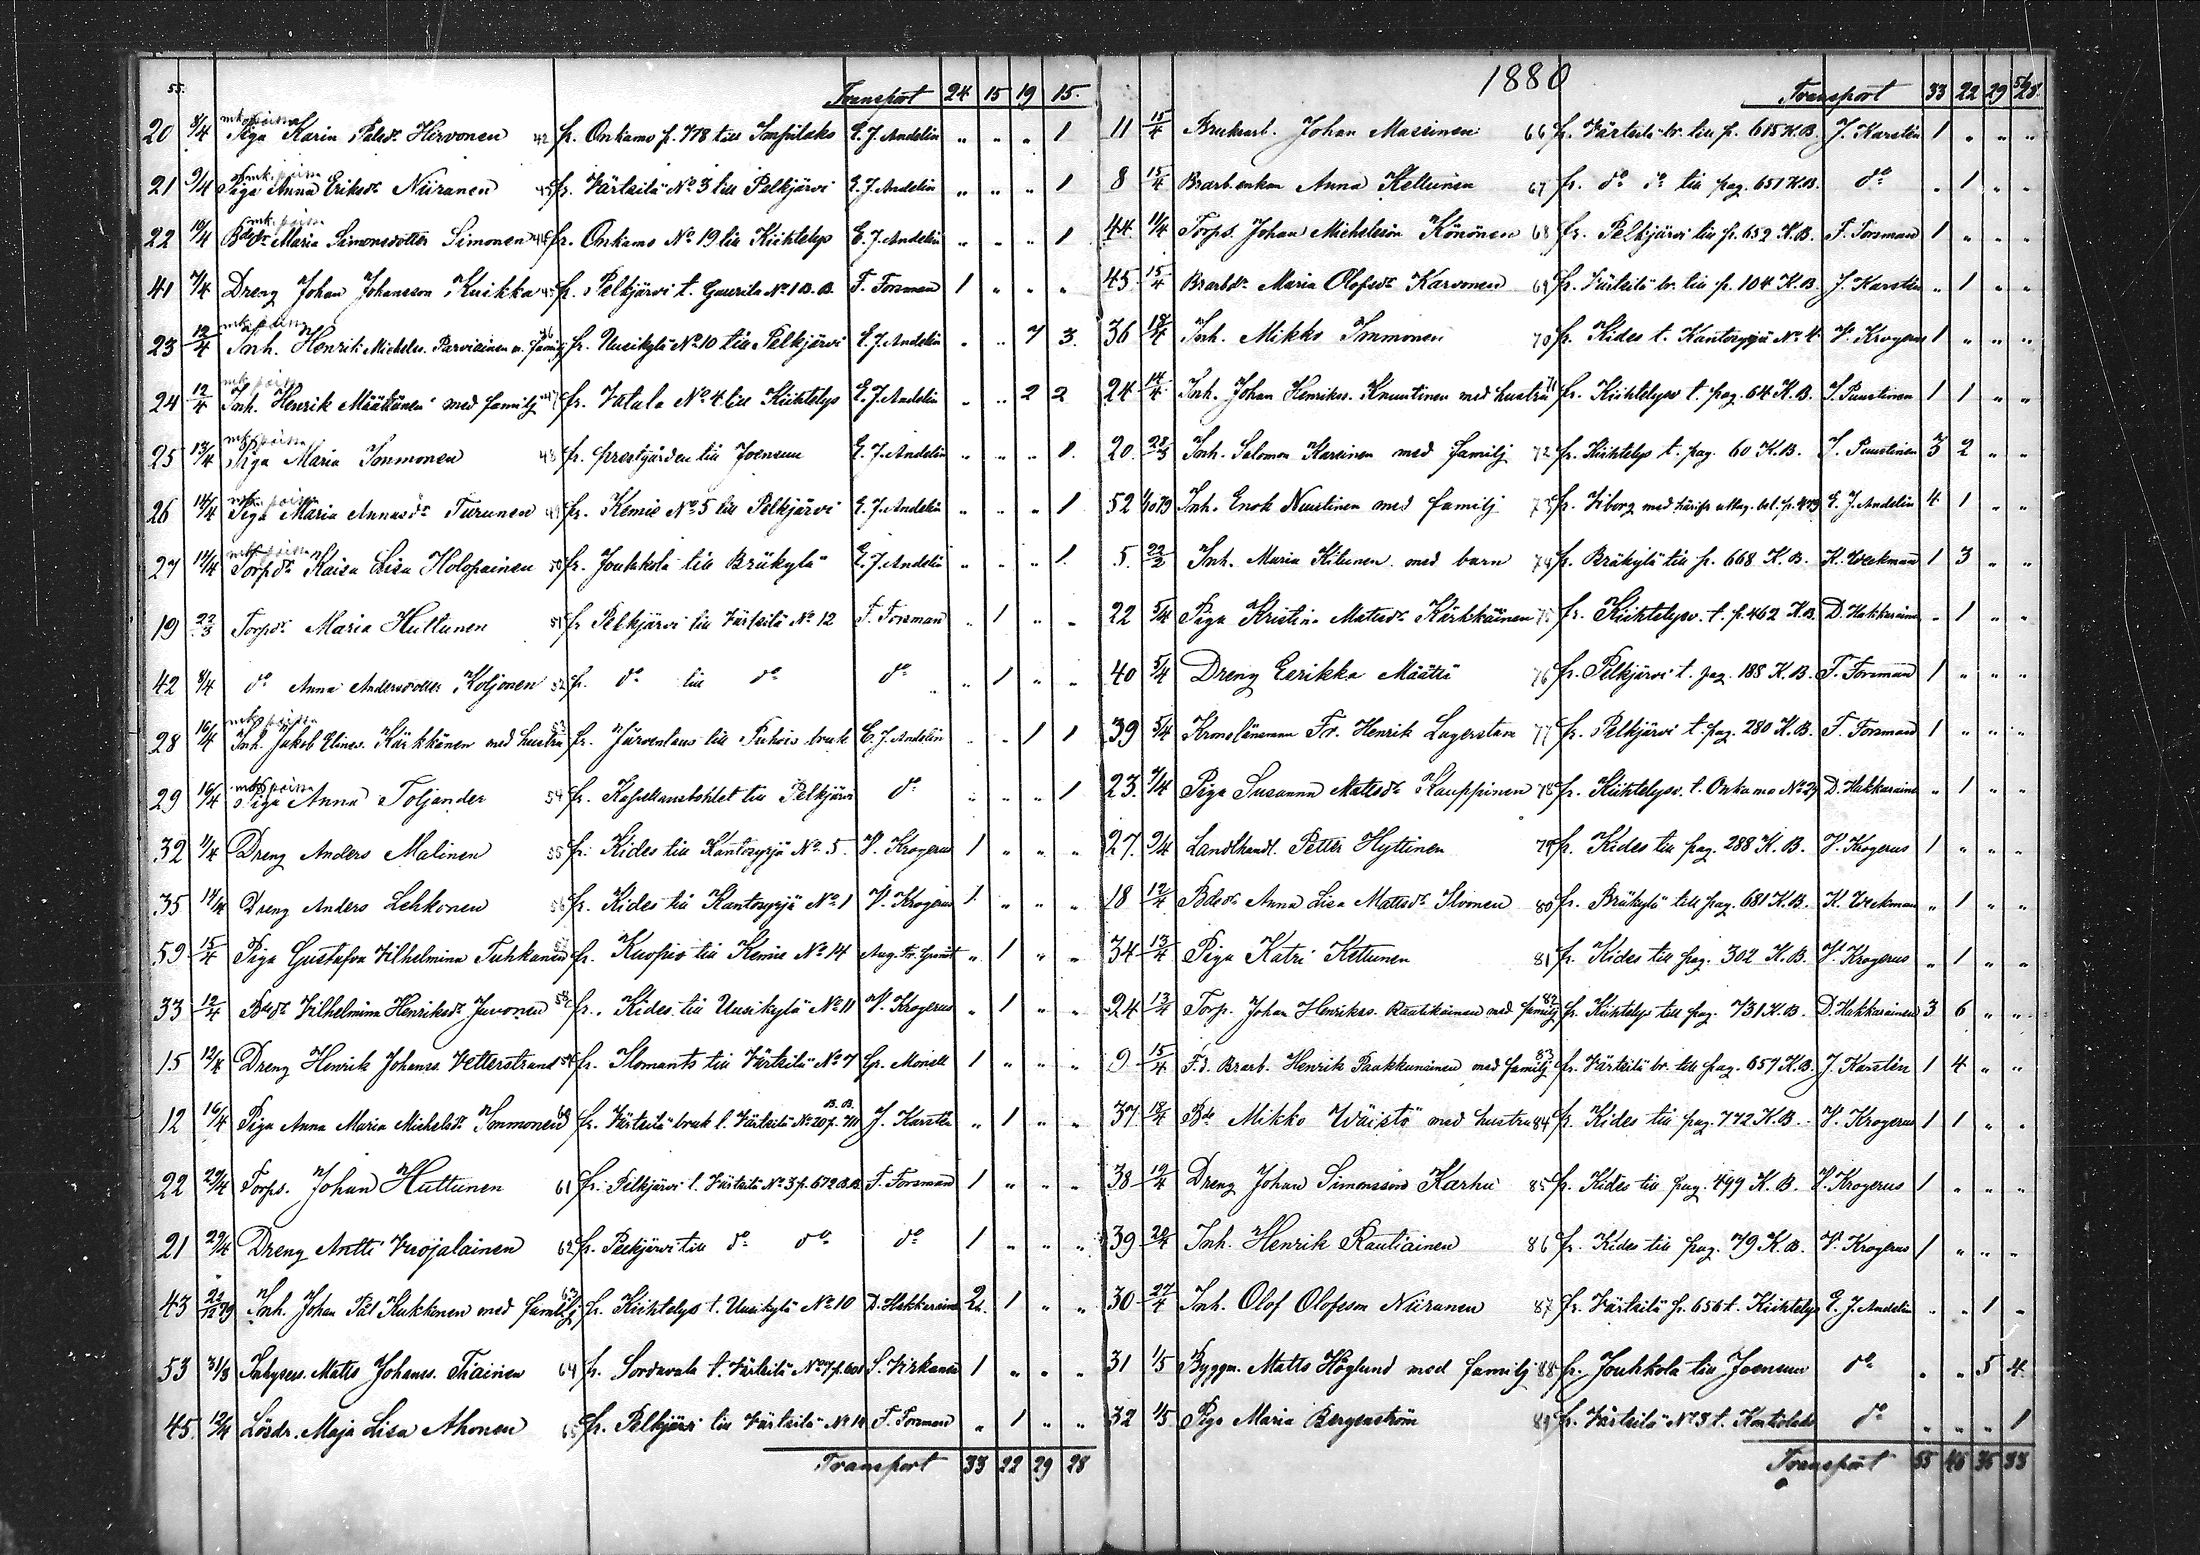 55.
Transport 24 15 19 15.
20 8/4 Piga Karin Pålsdr Hirvonen 42 fr. Onkamo p. 778 till Impilaks E. J. Andelin " " " 1
21 9/4 Piga Anna Eriksdr Niiranen 43 fr. Värtsilä No 3 till Pelkjärvi E. J. Andelin " " " 1
22 10/4 Bdedr Maria Simonsdotter Simonen 44 fr. Onkamo No 19 till Kiihtelys E. J. Andelin " " " 1
41 7/4 Dreng Johan Johansson Kuikka 45 fr. Pelkjärvi t. Gaurila No 1 B. B. F. Forsman 1 " " "
23 12/4 Inh. Henrik Michelss. Parviainen m. familj 46 fr. Uusikylä No 10 till Pelkjärvi E. J. Andelin " " 7 3
24 12/4 Inh. Henrik Määttänen med familj 47 fr. Vatala No 4 till Kiihtelys E. J. Andelin " " 2 2
25 13/4 Piga Maria Immonen 48 fr. prestgården till Joensuu E. J. Andelin " " " 1
26 14/4 Piga Maria Annasdr Turunen 49 fr. Kemie No 5 till Pelkjärvi E. J. Andelin " " " 1
27 14/4 Torpdr Kaisa Lisa Holopainen 50 fr. Jouhkola till Bräkylä E. J. Andelin " " " 1
19 22/3 Torpdr Maria Huttunen 51 fr. Pelkjärvi till Värtsilä No 12 F. Forsman " 1 " "
42 8/4 do Anna Andersdotter Koljonen 52 fr. do till do do " 1 " "
28 16/4 Inh. Jakob Eliness. Kärkkänen med hustru 53 fr. Järventaus till Puhois bruk E. J. Andelin " " 1 1
29 16/4 Piga Anna Toljander 54 fr. Kapellansbohlet till Pelkjärvi do " " " 1
32 11/4 Dreng Anders Malinen 55 fr. Kides till Kantosyrjä No 5. V. Krogerus 1 " " "
35 14/4 Dreng Anders Lehkonen 56 fr. Kides till Kantosyrjä No 1 V. Krogerus 1 " " "
59 15/4 Piga Gustafva Vilhelmina Tuhkanen 57 fr. Kuopio till Kemie No 14 Aug. Fr. Granit " 1 " "
33 12/4 Bdedr Vilhelmina Henriksdr Juvonen 58 fr. Kides till Uusikylä No 11 V. Krogerus " 1 " "
15 12/4 Dreng Henrik Johanss. Vetterstrand 59 fr. Ilomants till Värtsilä No 7 Gr. Monell 1 " " "
12 16/4 Piga Anna Maria Michelsdr Immonen 60 fr. Värtsilä bruk t. Värtsilä No 20 p. 711 B. B. J. Karsten " 1 " "
22 29/4 Torps. Johan Huttunen 61 fr. Pelkjärvi t. Värtsilä No 3 p. 672 B.B. F. Forsman 1 " " "
21 29/4 Dreng Antti Vuojalainen 62 fr. Pelkjärvi till do do do 1 " " "
43 21/12 79 Inh. Johan Pål Kukkonen med familj 63 fr. Kiihtelys t. Uusikylä No 10 D. Hakkarainen 2 1 " "
53 31/3 Inhyses. Matts Johanss. Tiainen 64 fr. Sordavala t. Värtsilä No 7 S. Sirkanen 1 " " "
45. 12/4 Lösdr. Maja Lisa Ahonen 65 fr. Pelkjärvi till Värtsilä No 14 F. Forsman " 1 " "
Transport 33 22 29 28
1880
Transport 33 22 29 28.
11 15/4 Brukarb. Johan Massinen 66 fr. Värtsilä br. till p. 615 K.B. J. Karsten 1 " " "
8 15/4 Brarb.enkan Anna Kettunen 67 fr. do do till pag. 651 K.B. do " 1 " "
44 11/4 Torps. Johan Michelsson Könönen 68 fr. Pelkjärvi till p. 652 K.B. F. Forsman 1 " " "
45 15/4 Brarbdr Maria Olofsdr Karvonen 69 fr. Värtsilä br. till p. 104 K.B. J. Karsten " 1 " "
36 18/4 Inh. Mikko Immonen 70 fr. Kides t. Kantosyrjä No 4 V. Krogerus 1 " " "
24 14/4 Inh. Johan Henrikss. Knuutinen med hustru 71 fr. Kiihtelysv t. pag. 64 K.B. S. Puustinen 1 1 " "
20 22/3 Inh. Salomon Karinen med familj 72 fr. Kiihtelys t. pag. 60 K.B. S. Puustinen 3 2 " "
52 4/10 79 Inh. Enok Nuutinen med familj 73 fr. Viborg med härifr. uttag. bet. p. 479 E. J. Andelin 4 1 " "
5. 22/2 Inh. Maria Kitunen med barn 74 fr. Bräkylä till p. 668 K.B. K. Weckman 1 3 " "
22 5/4 Piga Kristina Mattsdr Kärkkäinen 75 fr. Kiihtelysv. t. p. 462 K.B. D. Hakkarainen " 1 " "
40 5/4 Dreng Eerikka Määttä 76 fr. Pelkjärvi t. pag. 188 K.B. F. Forsman 1 " " "
39 5/4 Kronolänsman Fr. Henrik Lagerstam 77 fr. Pelkjärvi t. pag. 280 K.B. F. Forsman 1 " " "
23 7/4 Piga Susanna Mattsdr Kauppinen 78 fr. Kiihtelysv. t. Onkamo No 27 D. Hakkarainen " 1 " "
27. 9/4 Landthandl. Petter Hyttinen 79 fr. Kides till pag. 288 K.B. V. Krogerus 1 " " "
18 12/4 Bdedr Anna Lisa Mattsdr Ilvonen 80 fr. Bräkylä till pag. 681 K.B. K. Weckman " 1 " "
34 13/4 Piga Katri Kettunen 81 fr. Kides till pag. 302 K.B. V. Krogerus " 1 " "
24 13/4 Torp. Johan Henrikss. Rautikainen med familj 82 fr. Kiihtelys till pag. 731 K.B. D. Hakkarainen 3 6 " "
9 15/4 F.d. Brarb. Henrik Paakkunainen med familj 83 fr. Värtsilä br. till pag. 657 K.B. J. Karstén 1 4 " "
37 18/4 Bde Mikko Wäistö med hustru 84 fr. Kides till pag. 772 K.B. V. Krogerus 1 1 " "
38 19/4 Dreng Johan Simonsson Karhu 85 fr. Kides till pag. 499 K.B. V. Krogerus 1 " " "
39 20/4 Inh. Henrik Rautiainen 86 fr. Kides till pag. 79 K.B. V. Krogerus 1 " " "
30 27/4 Inh. Olof Olofsson Niiranen 87 fr. Värtsilä p. 656 t. Kiihtelys E. J. Andelin " " 1 "
31 1/5 Byggm. Matts Höglund med familj 88 fr. Jouhkola till Joensuu do " " 5 4
32 1/5 Piga Maria Bergenström 89 fr. Värtsilä No 3 t. Kontiolaks do " " " 1
Transport 55 46 35 33